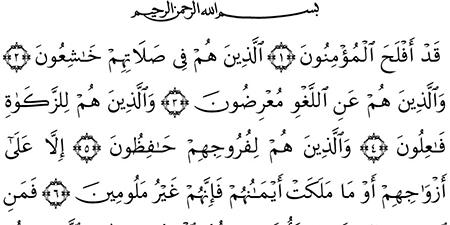 بِسْمِ اللَّهِ الرَّحْمَٰنِ الرَّحِيمِ
قَدْ أَفْلَحَ الْمُؤْمِنُونَ ﴿١﴾ الَّذِينَ هُمْ فِي صَلَاتِهِمْ خَاشِعُونَ ﴿٢﴾
وَالَّذِينَ هُمْ عَنِ اللَّغْوِ مُعْرِضُونَ ﴿٣﴾ وَالَّذِينَ هُمْ لِلزَّكَوٰةِ
فَاعِلُونَ ﴿٤﴾ وَالَّذِينَ هُمْ لِفُرُوجِهِمْ حَافِظُونَ ﴿٥﴾ إِلَّا عَلَىٰٓ
أَزْوَاجِهِمْ أَوْ مَا مَلَكَتْ أَيْمَانُهُمْ فَإِنَّهُمْ غَيْرُ مَلُومِينَ ﴿٦﴾ فَمَنِ